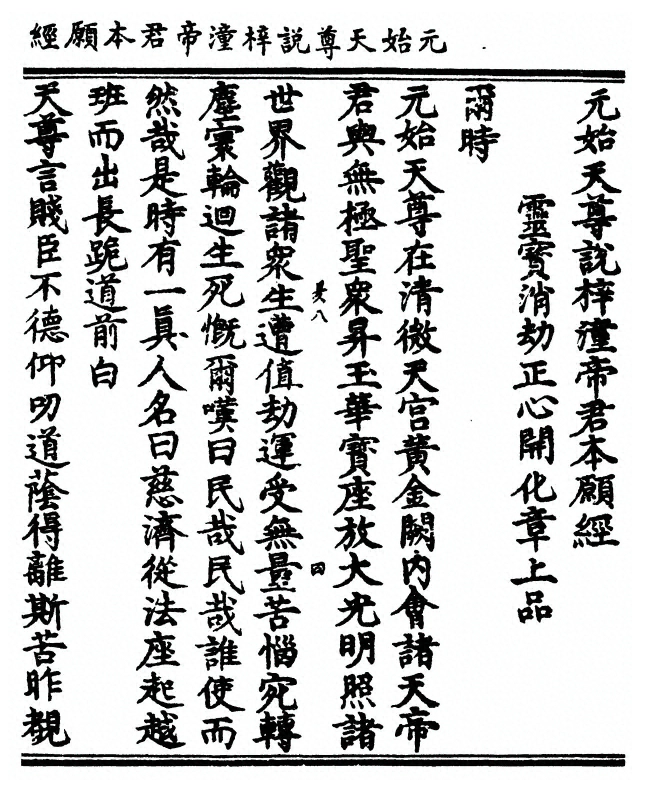 元始天尊說梓潼帝君本願經
元始天尊說梓潼帝君本願經
靈寳消劫正心開化章上品
爾時
元始天尊在清微天宮黃金闕內會諸天帝
君與無極聖衆昇玉華寳座放大光明照諸
世界觀諸衆生遭值劫運受無量苦惱宛轉
塵寰輪迴生死慨爾嘆曰民哉民哉誰使而
然哉是時有一眞人名曰慈濟從法座起越
班而出長跪道前白
天尊言賤臣不德仰叨道蔭得離斯苦昨覩
八
四